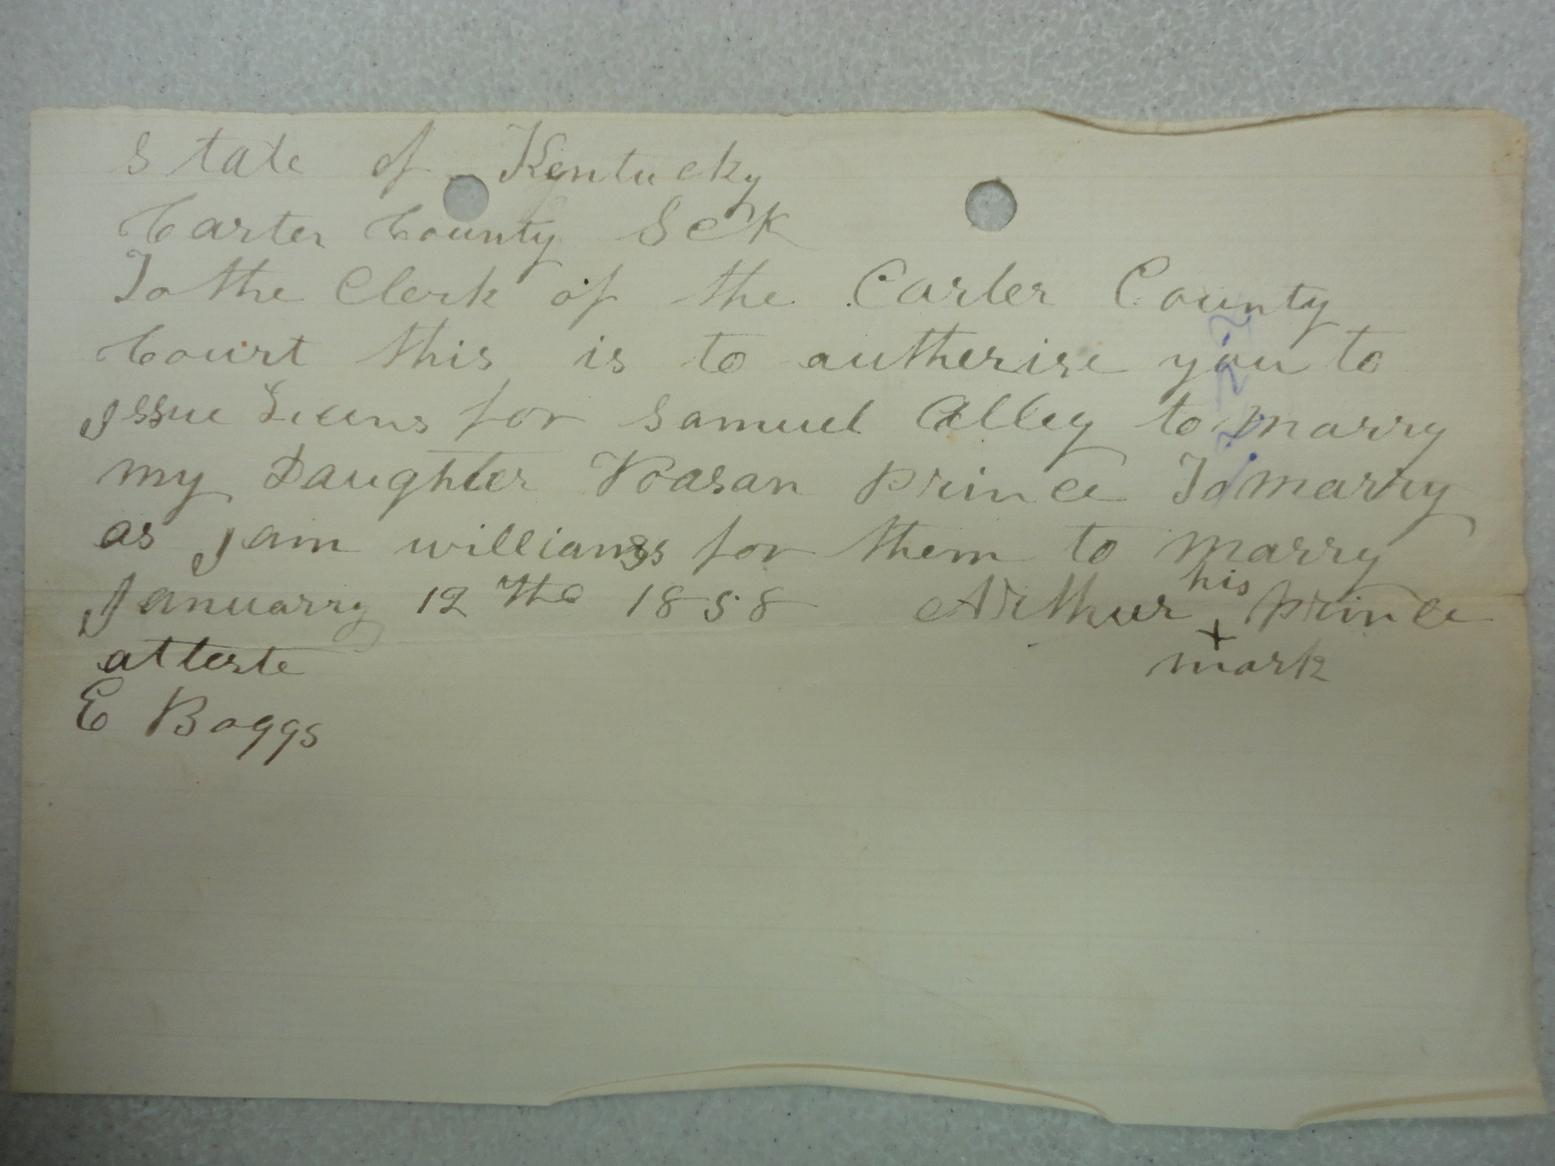 State of Kentucky
Carter County Sck
To the Clerk of the Carter County
Court this is to autherise you to
Issue Licens for Samuel Alley to marry
my Daughter Roasan Prince To marry
as I am willianss for them to marry
Januarry 12 the 1858 Arthur his Prince
atteste + mark
E Boggs